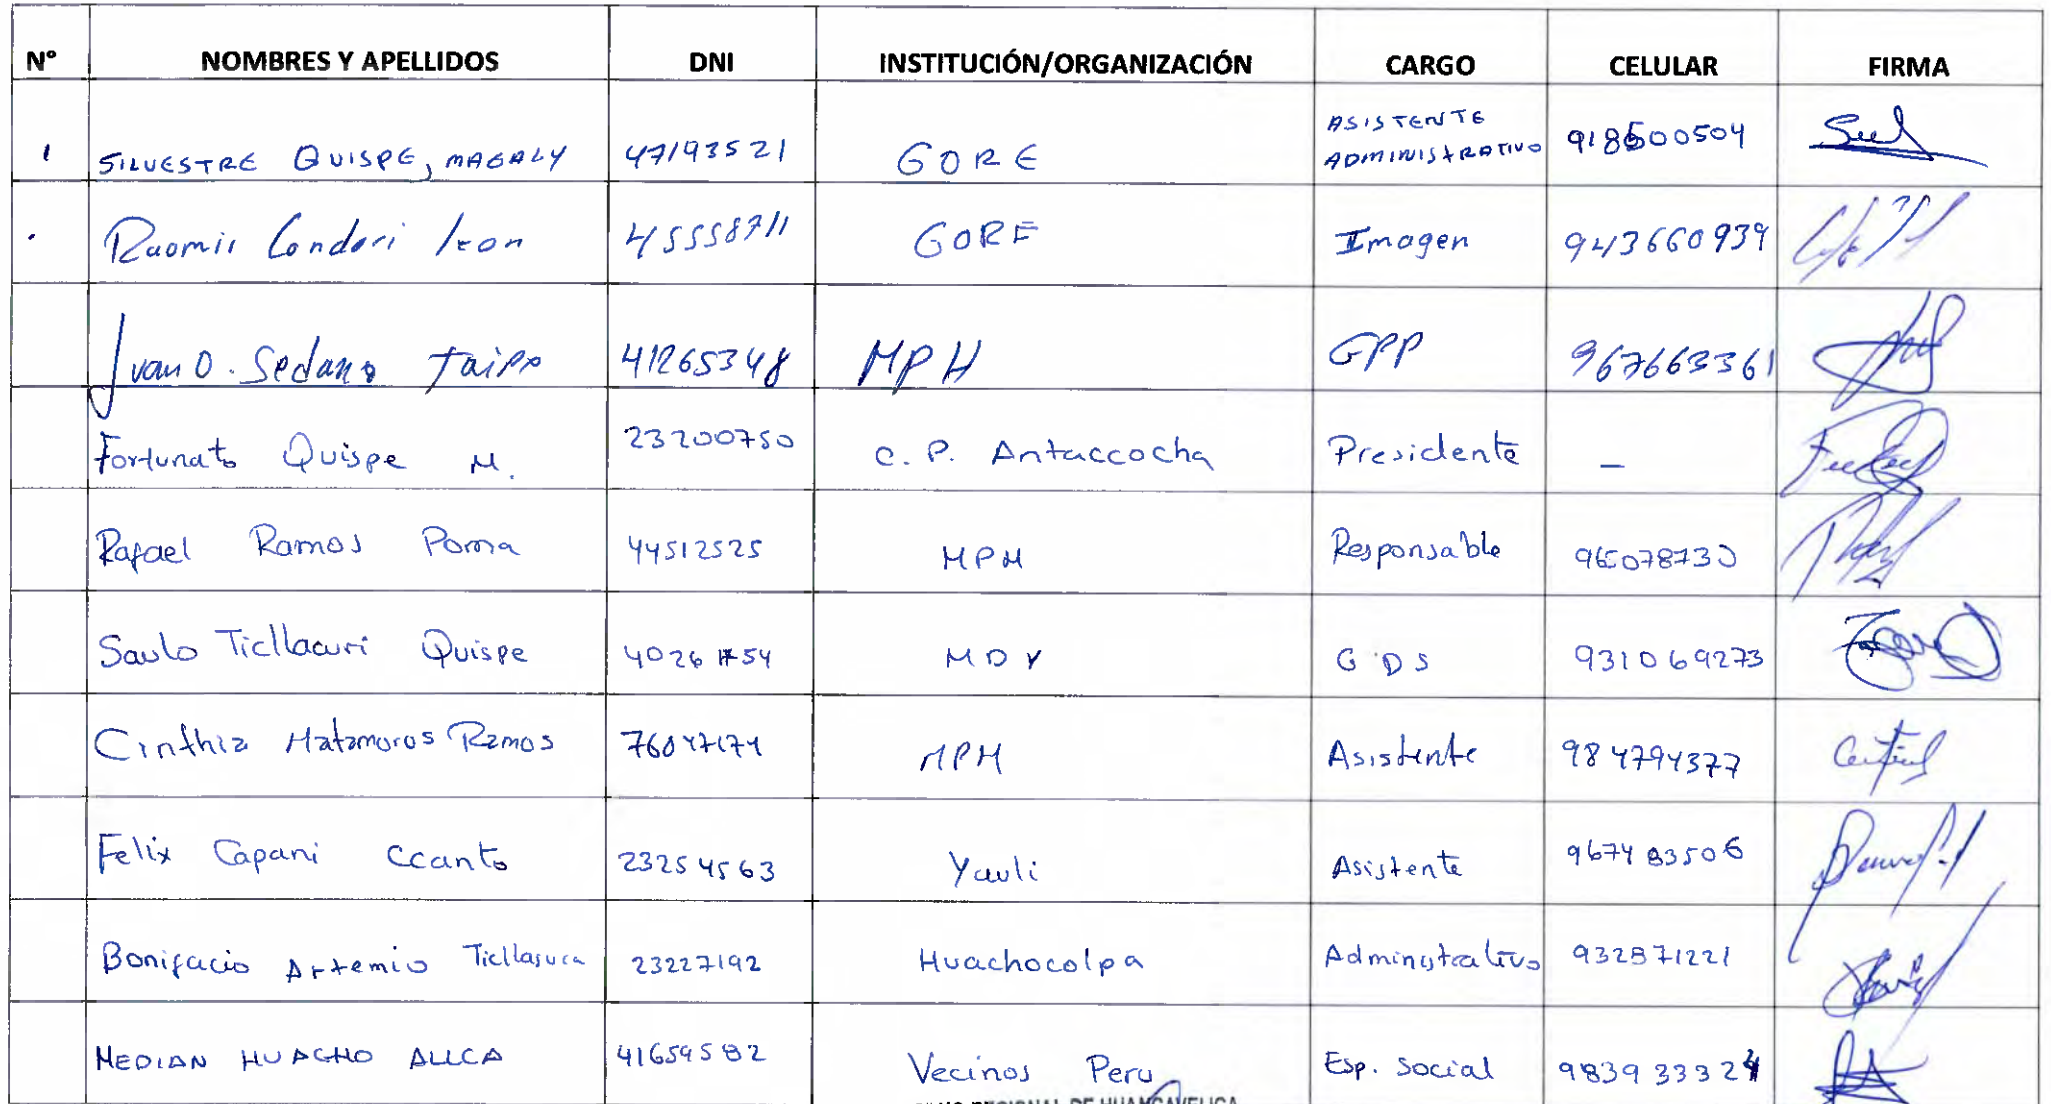 N° NOMBRES Y APELLIDOS DNI INSTITUCIÓN/ORGANIZACIÓN CARGO CELULAR FIRMA
1 SILVESTRE QUISPE, MAGALY 47193521 GORE ASISTENTE ADMINISTRATIVO 918600504
Condori leon 45558711 GORE Imagen 943660939
Ivan O. Sedano Taipe 41265348 MPH GPP 967663361
Fortunato Quispe M. 23200750 C. P. Antaccocha Presidente –
Rafael Ramos Poma 44512525 MPH Responsable 965078730
Saulo Ticllacuri Quispe MDY GDS 931069273
Cinthia Matamoros Ramos 76047174 MPH Asistente 984794377
Felix Capani Ccanto 23254563 Yauli Asistente 967483506
Bonifacio Artemio Ticllasuca 23227192 Huachocolpa Administrativo 932871221
MEDIAN HUACHO ALLCA 41659582 Vecinos Peru Esp. Social 983933324
REGIONAL DE HUANCAVELICA